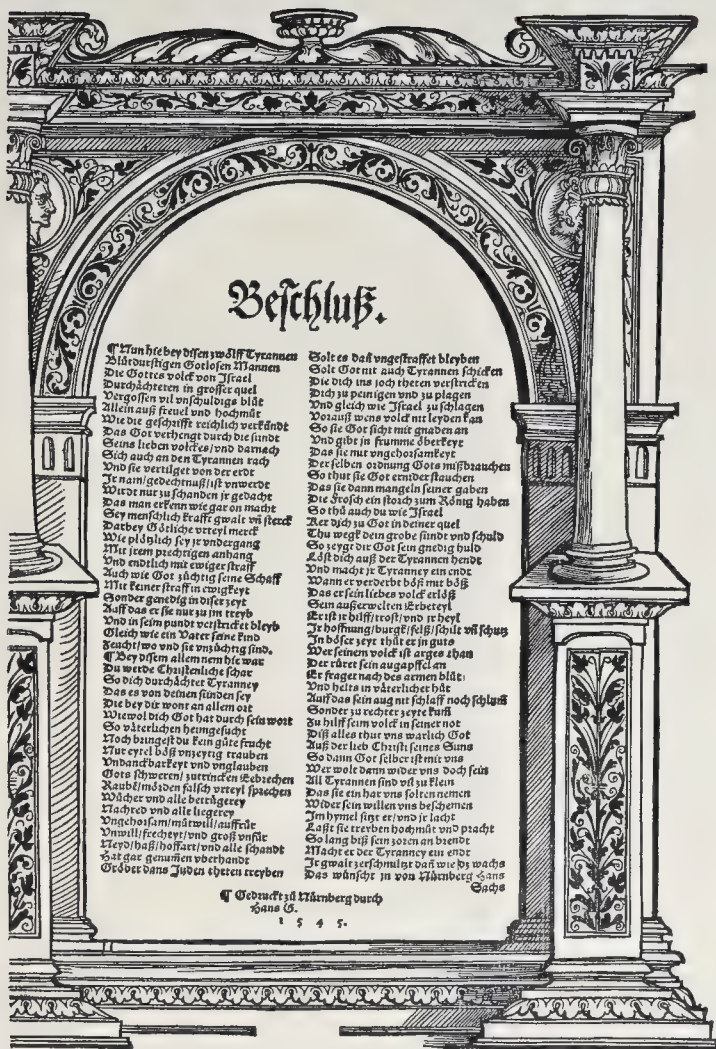 Beschluß.
¶ Nun hie bey disen zwölff Tyrannen
Blutdurstigen Gotlosen Mannen
Die Gottes volck von Israel
Durchächteren in grosser quel
Vergossen vil vnschuldigs blůt
Allein auß freuel vnd hochmůt
Wie die geschrifft reichlich verkündt
Das Got verhengt durch die sündt
Seins lieben volckes/vnd darnach
Sich auch an den Tyrannen rach
Vnd sie vertilget von der erdt
Ir nam/gedechtnuß/ist vnwerdt
Wirdt nur zu schanden ir gedacht
Das man erkenn wie gar on macht
Sey menschlich krafft gwalt vñ sterck
Darbey Götliche vrteyl merck
Wie plötzlich sey ir vndergang
Mit irem prechtigen anhang
Vnd endtlich mit ewiger straff
Auch wie Got züchtig seine Schaff
Mit keiner straff in ewigkeyt
Sonder genedig in diser zeyt
Auff das er sie nur zu im treyb
Vnd in seim pundt verstricket bleyb
Gleich wie ein Vater seine kind
Feucht/wo vnd sie vnzüchtig sind.
¶ Bey disem allem nem hie war
Du werde Christenliche schar
So dich durchächter Tyranney
Das es von deinen sünden sey
Die bey dir wont an allem ort
Wiewol dich Got hat durch sein wort
So väterlichen heimgesucht
Noch bringest du kein gůte frucht
Nur eytel böß vnzeytig trauben
Vndanckbarkeyt vnd vnglauben
Gots schweren/ zutrincken Eebrechen
Raubē/mörden falsch vrteyl sprechen
Wůcher vnd alle betrügerey
Nachred vnd alle liegerey
Vngehorsam/můtwill/auffrůr
Vnwill/frecheyt/vnd groß vnfůr
Neyd/haß/hoffart/vnd alle schandt
Hat gar genum̃en vberhandt
Gröber dans Juden theten treyben
Solt es dañ vngestraffet bleyben
Solt Got nit auch Tyrannen schicken
Die dich ins joch theten verstricken
Dich zu peinigen vnd zu plagen
Vnd gleich wie Israel zu schlagen
Vorauß wens volck nit leyden kan
So sie Got sicht mit gnaden an
Vnd gibt in frumme öberkeyt
Das sie mit vngehorsamkeyt
Der selben ordnung Gots mißbrauchen
So thut sie Got ernider stauchen
Das sie dann mangeln seiner gaben
Die Frösch ein storch zum König haben
So thů auch du wie Israel
Ker dich zu Got in deiner quel
Thu wegk dein grobe sündt vnd schuld
So zeygt dir Got sein gnedig huld
Löst dich auß der Tyrannen hendt
Vnd macht ir Tyranney ein endt
Wann er verderbt böß mit böß
Das er sein liebes volck erlöß
Sein außerwelten Erbeteyl
Er ist ir hilff/trost/vnd ir heyl
Ir hoffnung/burgk/felß/schilt vñ schutz
In böser zeyt thůt er in guts
Wer seinem volck ist arges than
Der rüret sein augapffel an
Er fraget nach des armen blůt/
Vnd helts in väterlicher hůt
Auff das sein aug nit schlaff noch schlum̃
Sonder zu rechter zeyte kum̃
Zu hilff seim volck in seiner not
Diß alles thut vns warlich Got
Auß der lieb Christi seines Suns
So dann Got selber ist mit vns
Wer wolt dann wider vns doch sein
All Tyrannen sind vil zu klein
Das sie ein har vns solten nemen
Wider sein willen vns beschemen
Im hymel sitzt er/vnd ir lacht
Laßt sie treyben hochmůt vnd pracht
So lang biß sein zoren an brendt
Macht er der Tyranney ein endt
Ir gwalt zerschmiltzt dañ wie dz wachs
Das wünscht in von Nürnberg Hans
Sachs
¶ Gedruckt zů Nürnberg durch
Hans G.
1 5 4 5.